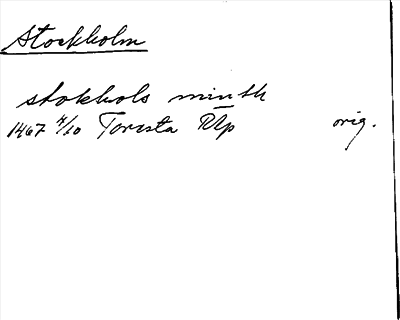 Stockholm
stokhols minth
1467 4/10 Torista RAp orig.